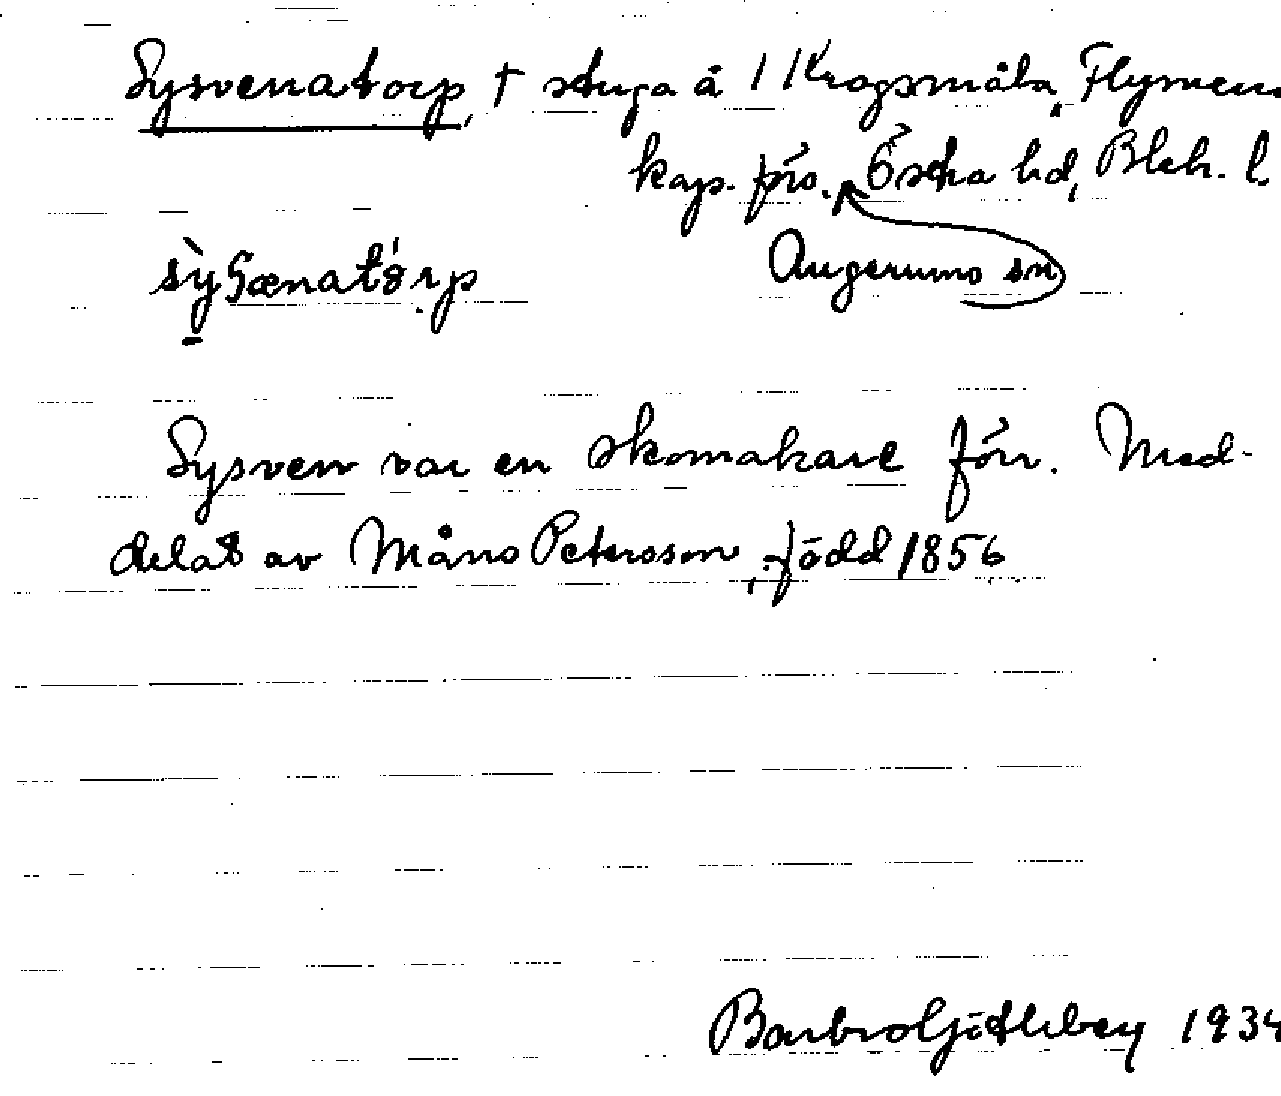 Sysvenatorp, † stuga å 1 Krogsmåla, Flymens
kap. förs. Östra hd, Blek. l.
Augerums sn
Sysven var en skomakare förr. Med-
delat av Måns Petersson, född 1856
1934